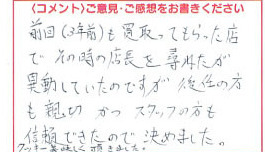 〈コメント〉ご意見・ご感想をお書きください
前回(3年前)も買取ってもらった店
で その時の店長を尋ねたが
異動していたのですが 後任の方
も親切 かつ スタッフの方も
信頼できたので 決めました。
クッキー美味しく頂きました。